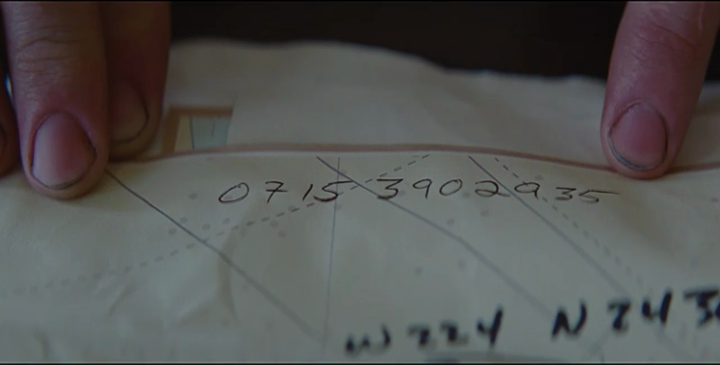 0715 3902935
W 224 N 243